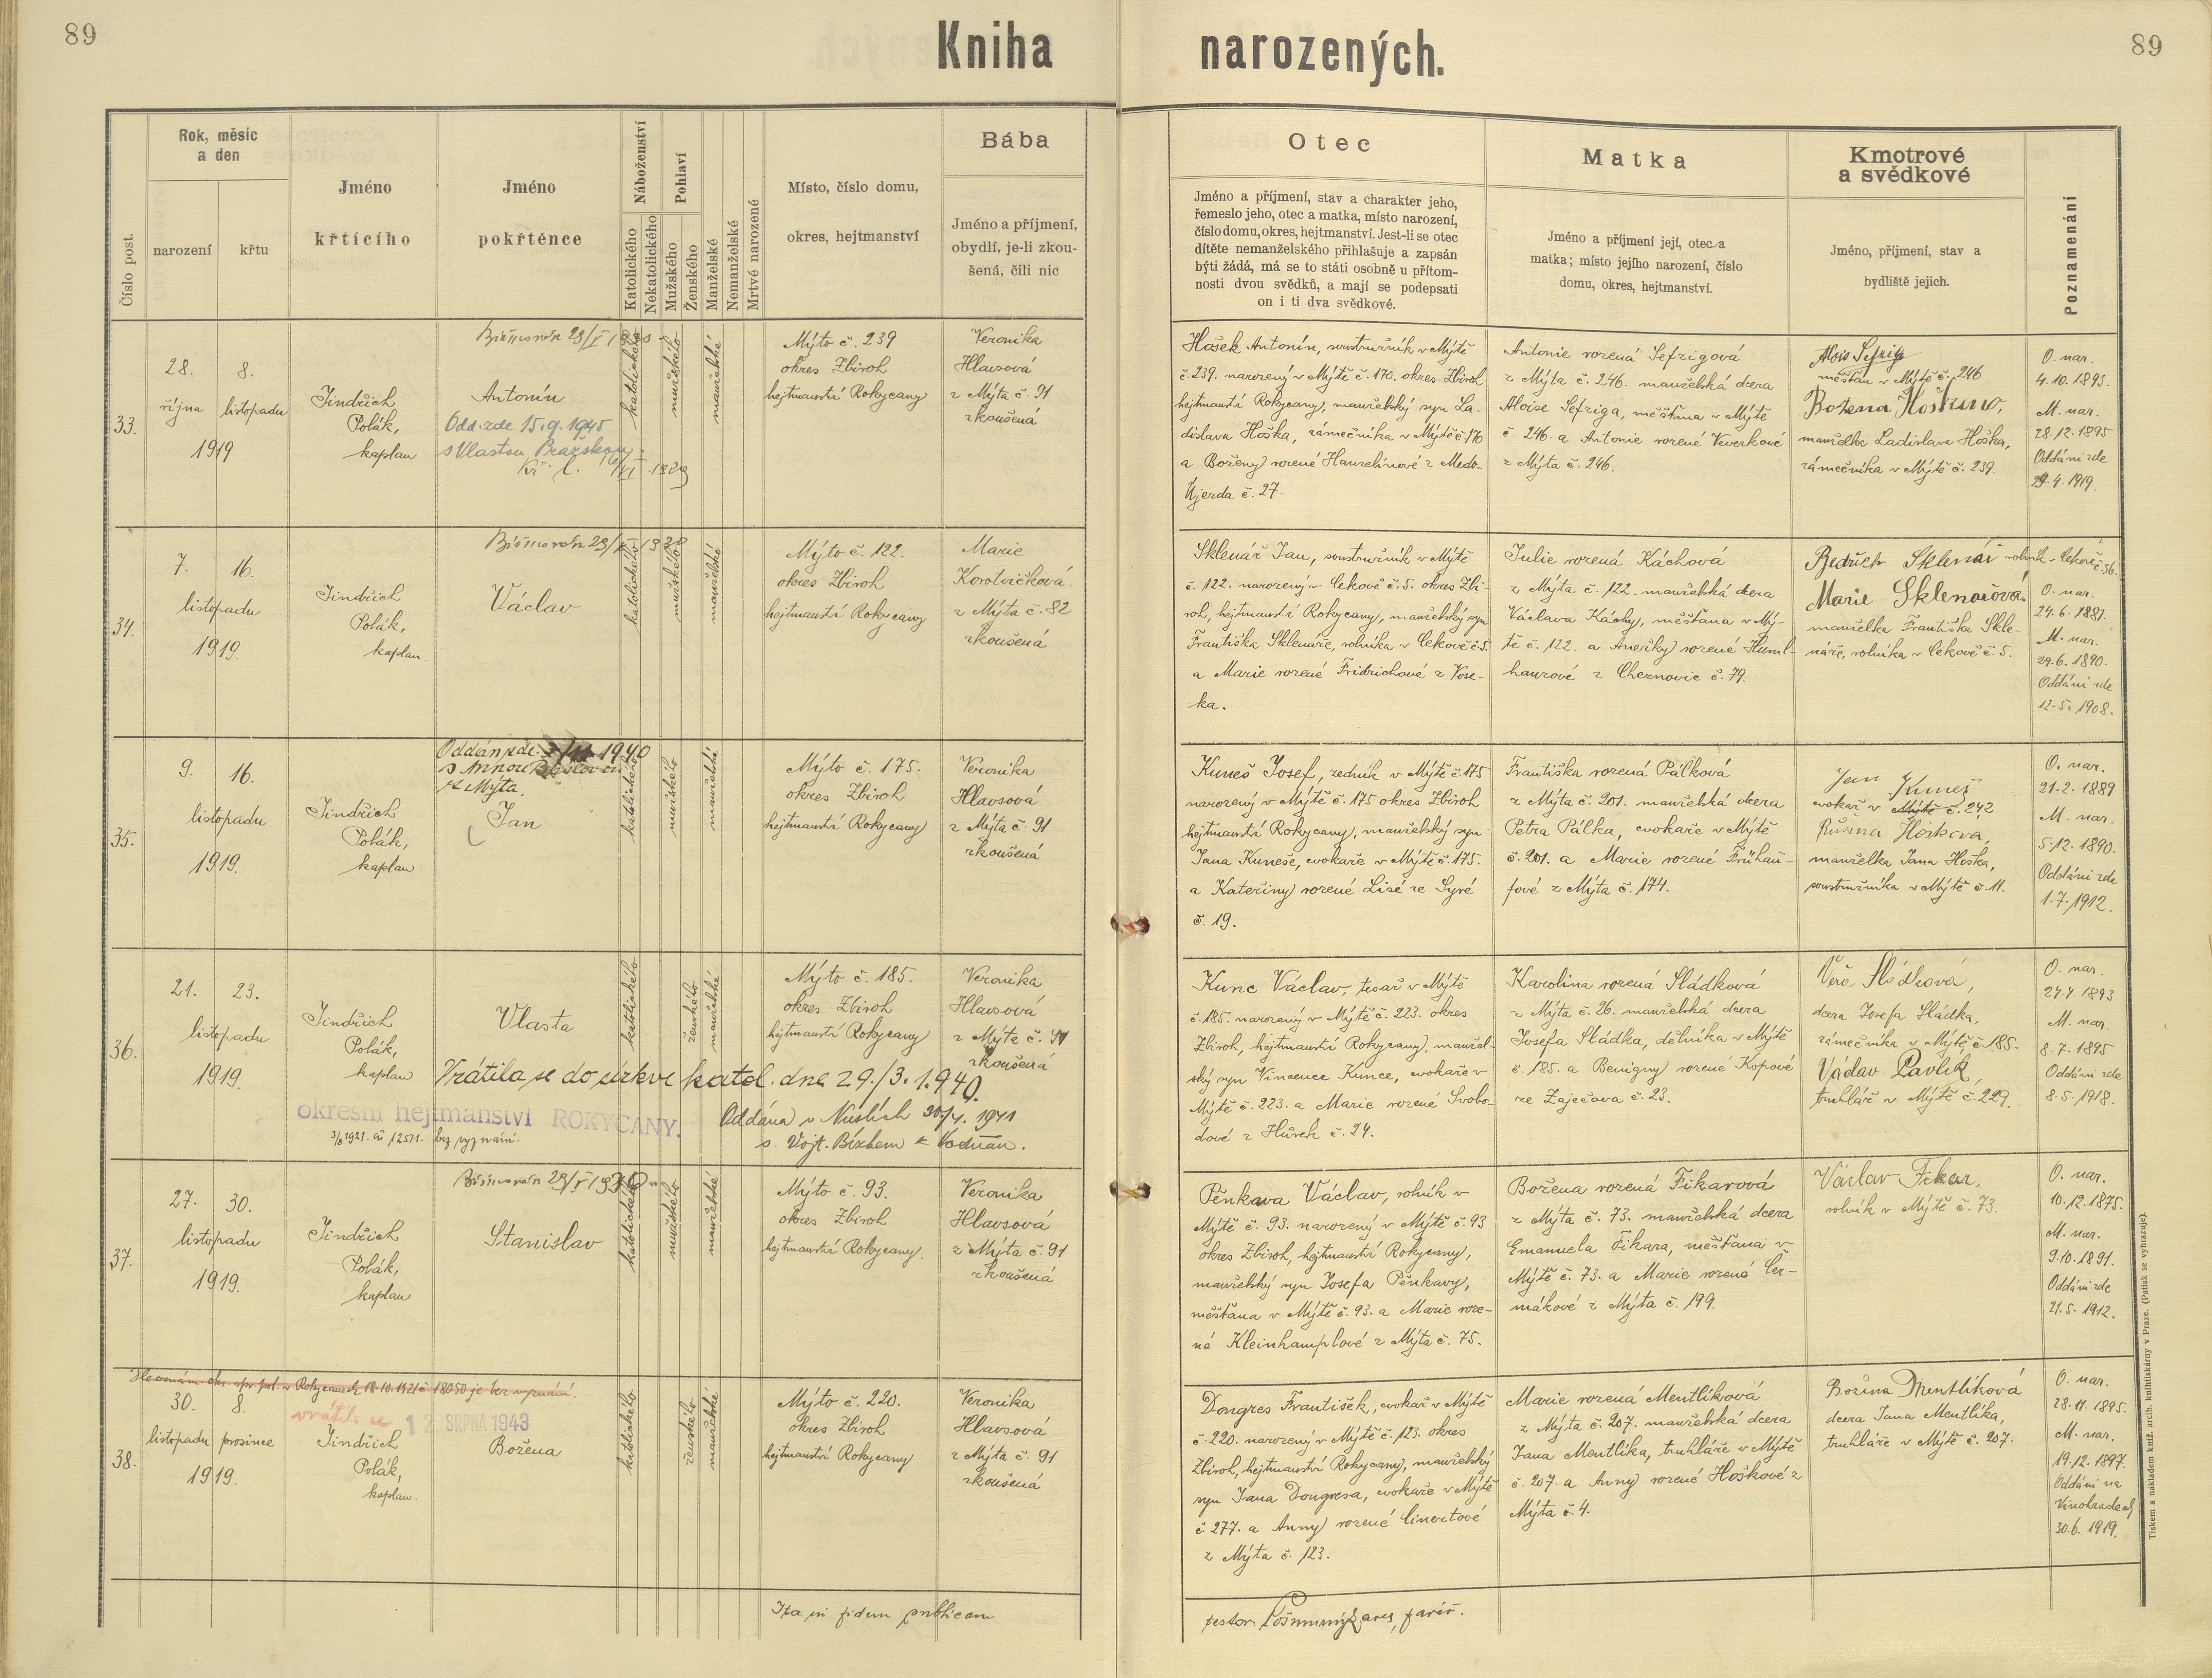 89
Kniha narozených.
89
Číslo post.
Rok, měsíc
a den
narození
křtu
Jméno
křtícího
Jméno
pokřtěnce
Náboženství
Katolického
Nekatolického
Pohlaví
Mužského
Ženského
Manželské
Nemanželské
Mrtvě narozené
Místo, číslo domu,
okres, hejtmanství
Bába
Jméno a příjmení,
obydlí, je-li zkou-
šená, čili nic
Otec
Jméno a příjmení, stav a charakter jeho,
řemeslo jeho, otec a matka, místo narození,
číslo domu, okres, hejtmanství. Jest-li se otec
dítěte nemanželského přihlašuje a zapsán
býti žádá, má se to státi osobně u přítom-
nosti dvou svědků, a mají se podepsati
on i ti dva svědkové.
Matka
Jméno a příjmení její, otec a
matka; místo jejího narození, číslo
domu, okres, hejtmanství.
Kmotrové
a svědkové
Jméno, příjmení, stav a
bydliště jejich.
Poznamenání
33.
28. 8.
října listopadu
1919
Jindřich
Polák,
kaplan
Biřmován 29/V
Antonín
Odd. zde 15.9.1945
s Vlastou Pražskou
katolického
mužského
manželské
Mýto č. 239
okres Zbiroh
hejtmanství Rokycany
Veronika
Hlavsová
z Mýta č. 91
zkoušená
Hošek Antonín, soustružník v Mýtě
č. 239. narozený v Mýtě č. 170. okres Zbiroh
hejtmanství Rokycany, manželský syn La-
dislava Hoška, zámečníka v Mýtě č. 170
a Boženy rozené Hanzelínové z Medo-
Újezda č. 27.
Antonie rozená Sefrigová
z Mýta č. 246. manželská dcera
Aloise Sefriga, měšťana v Mýtě
č. 246. a Antonie rozené Kverkové
z Mýta č. 246.
Alois Sefrig
měšťan v Mýtě č. 246
Božena Hošková,
manželka Ladislava Hoška,
zámečníka v Mýtě č. 239.
O. nar.
4.10.1893.
M. nar.
28.12.1895
Oddáni zde
29.4.1919.
34.
7. 16.
listopadu
1919.
Jindřich
Polák,
kaplan.
Biřmován 29/V 1930
Václav
katolického
mužského
manželské
Mýto č. 122.
okres Zbiroh
hejtmanství Rokycany
Marie
Korotvičková
z Mýta č. 82
zkoušená
Sklenář Jan, soustružník v Mýtě
č. 122. narozený v Cekově č. 5. okres Zbi-
roh, hejtmanství Rokycany, manželský syn
Františka Sklenáře, rolníka v Cekově č. 5.
a Marie rozené Fridrichové z Vose-
ka.
Julie rozená Káchová
z Mýta č. 122. manželská dcera
Václava Káchy, měšťana v Mý-
tě č. 122. a Anežky rozené Huml-
hanzové z Cheznovic č. 79.
Bedřich Sklenář rolník Cekov č. 56.
Marie Sklenářová
manželka Františka Skle-
náře, rolníka v Cekově č. 5.
O. nar.
24.6.1881.
M. nar.
29.6.1890.
Oddáni zde
12.5.1908.
35.
9. 16.
listopadu
1919.
Jindřich
Polák,
kaplan
Oddán zde 1940
s Annou
z Mýta.
Jan
katolického
mužského
manželské
Mýto č. 175.
okres Zbiroh
hejtmanství Rokycany
Veronika
Hlavsová
z Mýta č. 91
zkoušená
Kuneš Josef, zedník v Mýtě č. 175
narozený v Mýtě č. 175 okres Zbiroh
hejtmanství Rokycany, manželský syn
Jana Kuneše, cvokaře v Mýtě č. 175.
a Kateřiny rozené Lisé ze Syré
č. 19.
Františka rozená Pálková
z Mýta č. 201. manželská dcera
Petra Pálka, cvokaře v Mýtě
č. 201. a Marie rozené Frühau-
fové z Mýta č. 174.
Jan Kuneš
cvokař v Mýtě č. 242
Růžena Hošková,
manželka Jana Hoška,
soustružníka v Mýtě č. 11.
O. nar.
21.2.1889
M. nar.
5.12.1890.
Oddáni zde
1.7.1912.
36.
21. 23.
listopadu
1919.
Jindřich
Polák,
kaplan
Vlasta
Vrátila se do církve katol. dne 29./3. 1940.
okresní hejtmanství ROKYCANY.
1921. čís. 12571. bez vyznání.
Oddána v Nuslích 30/4. 1941
s. Vojt. Bízkem z Vodňan.
katolického
ženského
manželské
Mýto č. 185.
okres Zbiroh
hejtmanství Rokycany
Veronika
Hlavsová
z Mýta č. 91
zkoušená
Kunc Václav, tesař v Mýtě
č. 185. narozený v Mýtě č. 223. okres
Zbiroh, hejtmanství Rokycany, manžel-
ský syn Vincence Kunce, cvokaře v
Mýtě č. 223. a Marie rozené Svobo-
dové z Hůrek č. 24.
Karolina rozená Sládková
z Mýta č. 26. manželská dcera
Josefa Sládka, dělníka v Mýtě
č. 185. a Benigny rozené Kopové
ze Zaječova č. 23.
Věra Sládková,
dcera Josefa Sládka,
zámečníka v Mýtě č. 185.
Václav Pavlík,
truhlář v Mýtě č. 229.
O. nar.
27.7.1893
M. nar.
8.7.1895
Oddáni zde
8.5.1918.
37.
27. 30.
listopadu
1919.
Jindřich
Polák,
kaplan
Biřmován 29/V 1930
Stanislav
katolického
mužského
manželské
Mýto č. 93.
okres Zbiroh
hejtmanství Rokycany.
Veronika
Hlavsová
z Mýta č. 91
zkoušená
Pěnkava Václav, rolník v
Mýtě č. 93. narozený v Mýtě č. 93
okres Zbiroh, hejtmanství Rokycany,
manželský syn Josefa Pěnkavy,
měšťana v Mýtě č. 93. a Marie roze-
né Kleinhamplové z Mýta č. 75.
Božena rozená Fikarová
z Mýta č. 73. manželská dcera
Emanuela Fikara, měšťana v
Mýtě č. 73. a Marie rozené Čer-
mákové z Mýta č. 199.
Václav Fikar,
rolník v Mýtě č. 73.
O. nar.
10.12.1875.
M. nar.
9.10.1891.
Oddáni zde
21.5.1912.
38.
Dle oznám. okr. spr. pol. v Rokycanech 18.10.1921 č. 18050 je bez vyznání.
30. 8.
listopadu prosince
1919.
vrátila se 12. SRPNA 1943
Jindřich
Polák,
kaplan.
Božena
katolického
ženského
manželské
Mýto č. 220.
okres Zbiroh
hejtmanství Rokycany
Veronika
Hlavsová
z Mýta č. 91
zkoušená
Dongres František, cvokař v Mýtě
č. 220. narozený v Mýtě č. 123. okres
Zbiroh, hejtmanství Rokycany, manželský
syn Jana Dongresa, cvokaře v Mýtě
č. 277. a Anny rozené Cinertové
z Mýta č. 123.
Marie rozená Mentlíková
z Mýta č. 207. manželská dcera
Jana Mentlíka, truhláře v Mýtě
č. 207. a Anny rozené Hoškové z
Mýta č. 4.
Božena Mentlíková
dcera Jana Mentlíka,
truhláře v Mýtě č. 207.
O. nar.
28.11.1895.
M. nar.
19.12.1897.
Oddáni na
Vinohradech
30.6.1919.
Ita in fidem publicam
testor: farář.
Tiskem a nákladem kníž. arcib. knihtiskárny v Praze. (Patisk se vyhrazuje).